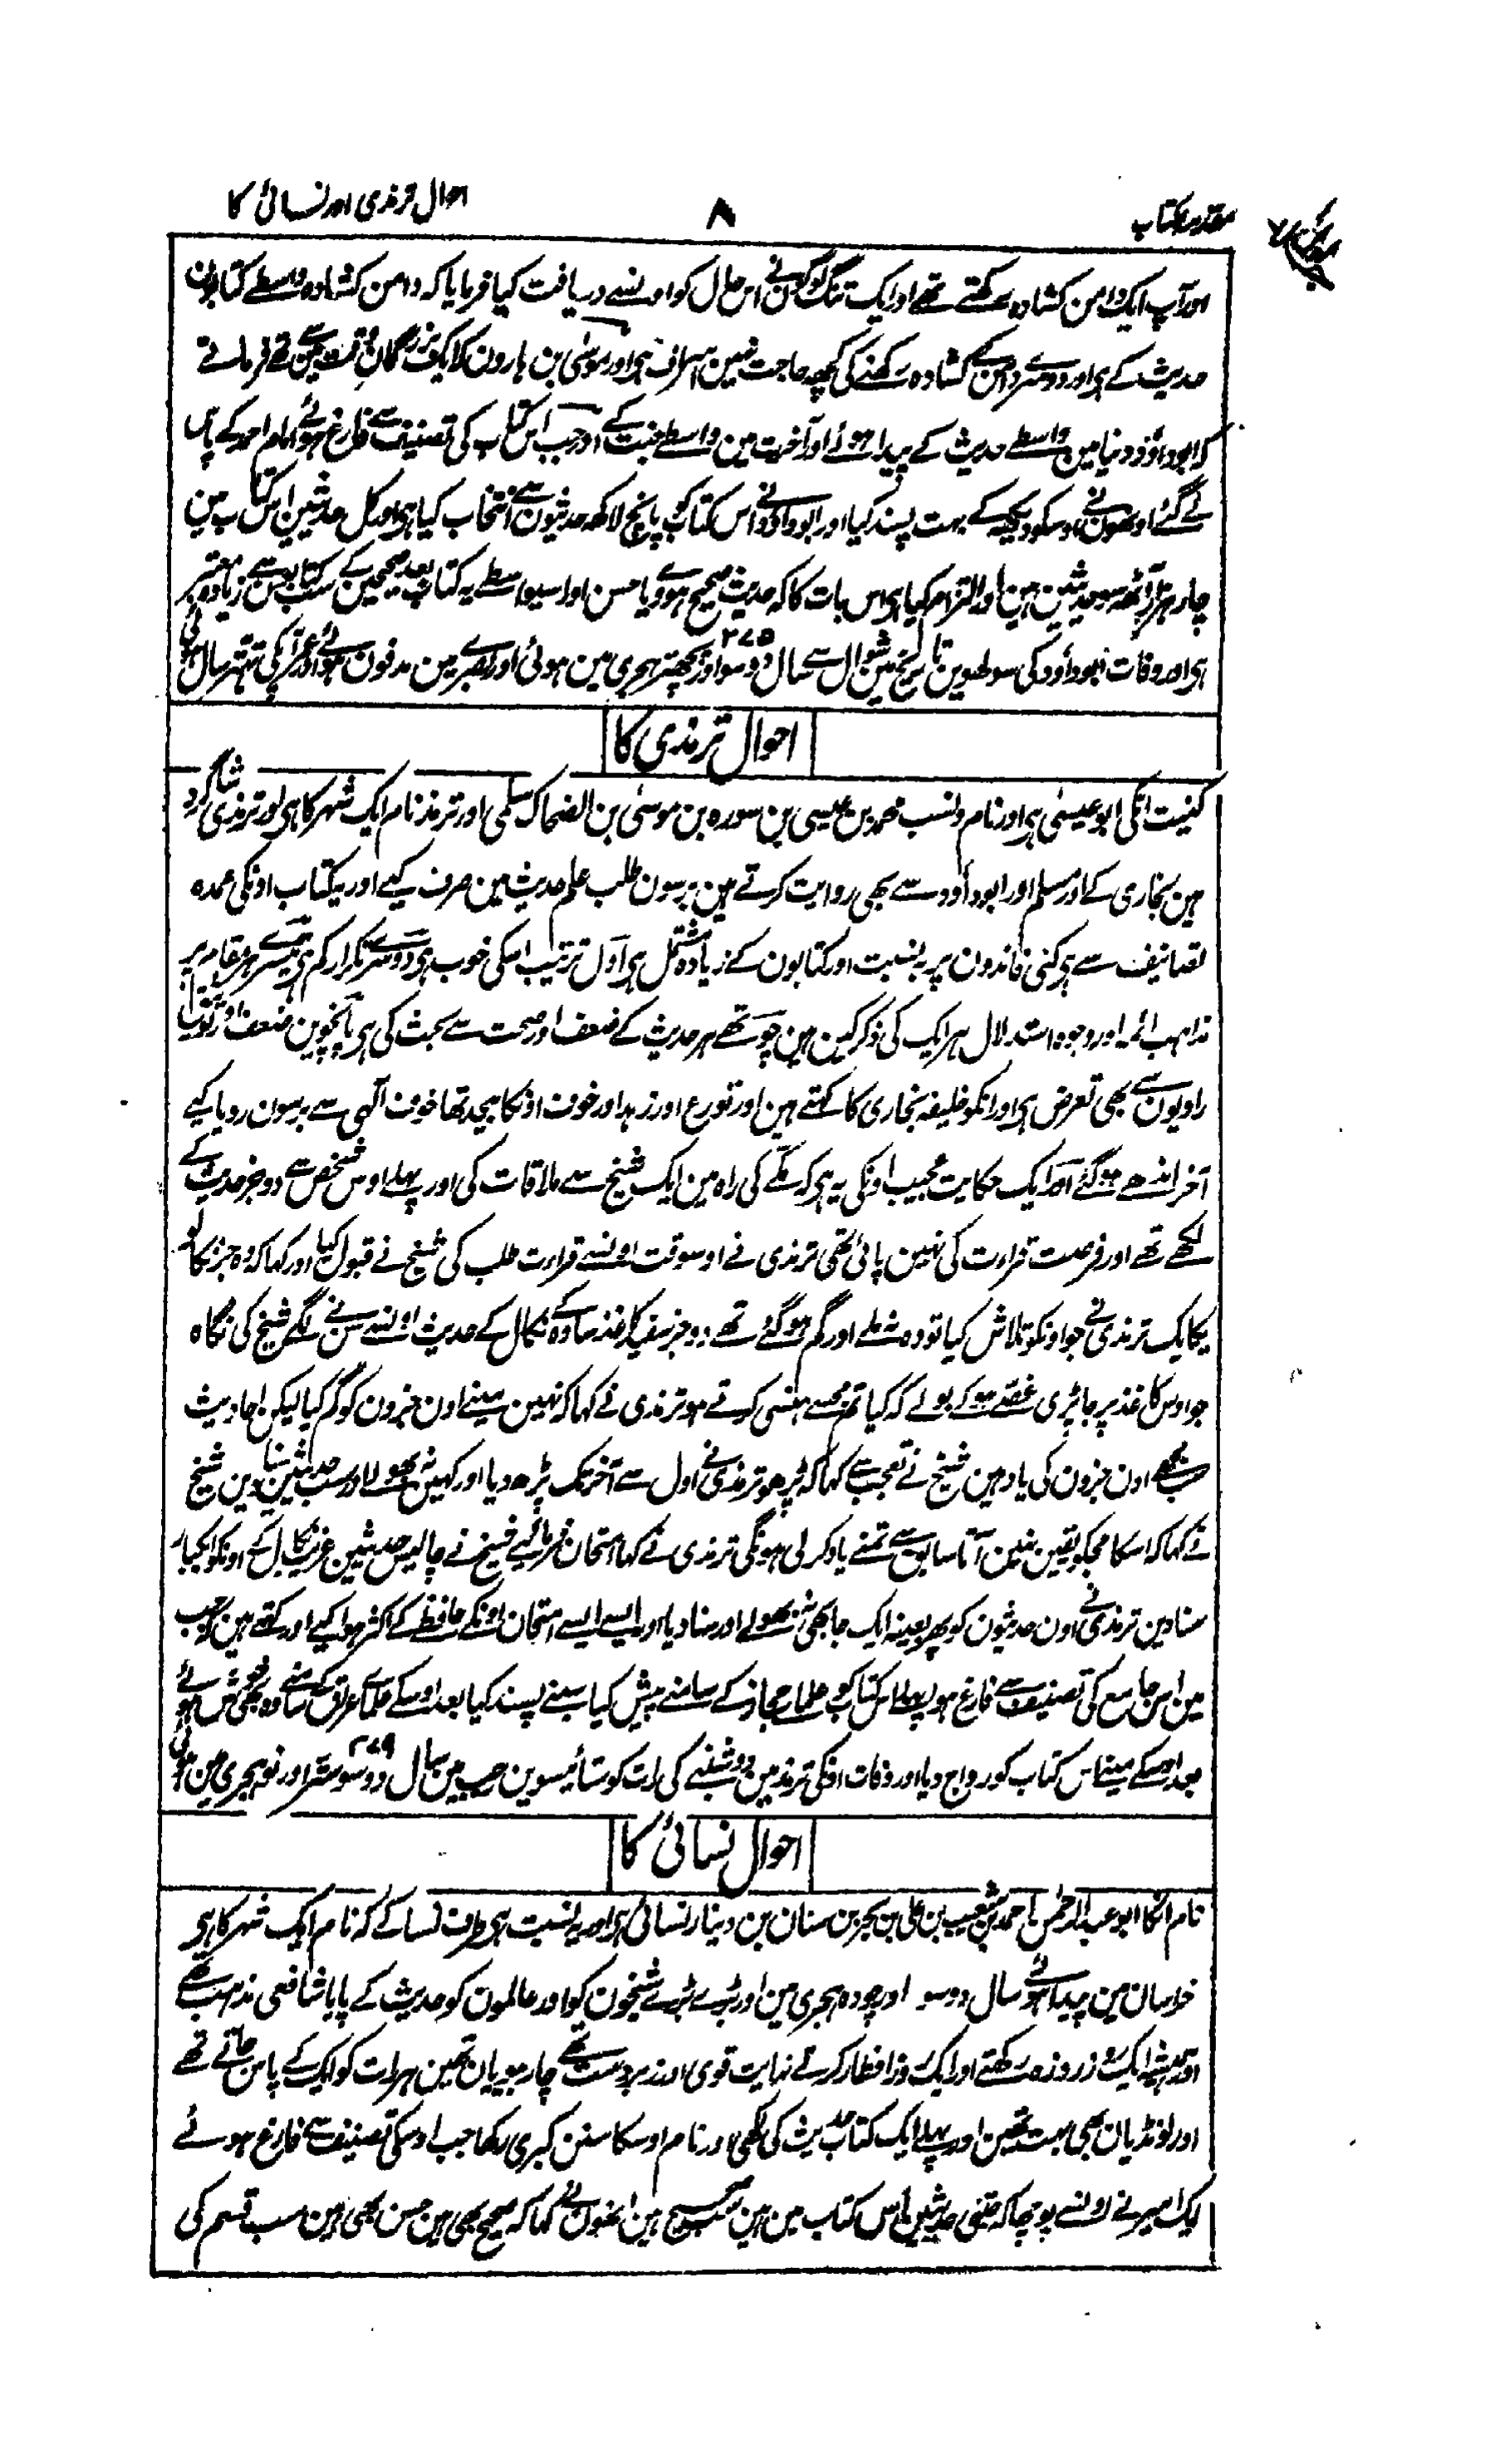 مقدمہ کتاب
۸
احوال ترمذی اور نسائی کا
اور آپ ایک دامن کشادہ رکھتے تھے اور ایک تنگ لوگون نے اس حال کو اونسے دریافت کیا فرمایا کہ دامن کشادہ واسطے کتابون
حدیث کے ہی اور دوسرے دامن کے کشادہ رکھنے کی کچھ حاجت نہین اسراف ہی اور موسیٰ بن ہارون کہ ایک بزرگ وقت سے تھے فرماتے
کہ ابوداؤد دنیا مین واسطے حدیث کے پیدا ہوئے اور آخرت مین واسطے جنت کے اور جب اس کتاب کی تصنیف سے فارغ ہوئے امام احمد کے پاس
لے گئے اونھون نے اوسکو دیکھ کے بہت پسند کیا اور ابوداؤد نے اس کتاب کو پانچ لاکھ حدیثون سے انتخاب کیا ہی اور کل حدیثین اس کتاب مین
چار ہزار آٹھ سو حدیثین ہین اور التزام کیا ہی اس بات کا کہ حدیث صحیح ہووے یا حسن اور اسیواسطے یہ کتاب بعد صحیحین کے سب کتابون سے زیادہ معتبر
ہی اور وفات ابوداؤد کی سولھوین تاریخ مین شوال سے سال ۲۷۵ دو سو اور پچھتر ہجری مین ہوئی اور بصرے مین مدفون ہوئے اور عمر آپکی تہتر سال کی ہوئی
احوال ترمذی کا
کنیت انکی ابو عیسیٰ ہی اور نام و نسب محمد بن عیسی بن سورہ بن موسیٰ بن الضحاک سلمی اور ترمذ نام ایک شہر کا ہی اور ترمذی شاگرد
ہین بخاری کے اور مسلم اور ابوداؤد سے بھی روایت کرتے ہین برسون طلب علم حدیث مین صرف کیے اور یہ کتاب اونکی عمدہ
تصانیف سے ہی کئی فائدون پر بہ نسبت اور کتابون کے زیادہ مشتمل ہی اول ترتیب اسکی خوب ہی دوسرے تکرار کم ہی تیسرے ہر مقام پر
مذاہب ائمہ اور وجوہ استدلال ہر ایک کی ذکر کین ہین چوتھے ہر حدیث کے ضعف اور صحت سے بحث کی ہی پانچوین ضعف اور توثیق
راویون سے بھی تعرض ہی اور انکو خلیفہ بخاری کا کہتے ہین اور تورع اور زہد اور خوف اونکا بیحد تھا خوف الٰہی سے برسون رویا کیے
آخر اندھے ہو گئے اور ایک حکایت عجیب اونکی یہ ہی کہ مکے کی راہ مین ایک شیخ سے ملاقات کی اور پہلے اوس شخص سے دو جز حدیث کے
لکھے تھے اور فرصت قراءت کی نہین پائی تھی ترمذی نے اوسوقت اونسے قراءت طلب کی شیخ نے قبول کیا اور کہا کہ وہ جز نکالو
یکایک ترمذی نے جو اونکو تلاش کیا تو وہ نہ ملے اور گم ہو گئے تھے دو جز سفید کاغذ سادہ کے نکال کے حدیث اونسے سننے لگے شیخ کی نگاہ
جو اوس کاغذ پر جا پڑی غصے ہو کے بولے کہ کیا تم مجھسے ہنسی کرتے ہو ترمذی نے کہا کہ نہین مینے اون جزون کو گم کیا لیکن احادیث
مجھے اون جزون کی یاد ہین شیخ نے تعجب سے کہا کہ پڑھو ترمذی نے اول سے آخر تک پڑھ دیا اور کہین نہ بھولا اور سب حدیثین سنا دین شیخ
نے کہا کہ اسکا مجکو یقین نہین آتا سابق سے تمنے یاد کر لی ہونگی ترمذی نے کہا امتحان فرمائیے شیخ نے چالیس حدیثین غریب نکال کے اونکو ایکبار
سنا دین ترمذی نے اون حدیثون کو پھر بعینہ ایک جا بھی نہ بھولے اور سنا دیا اور ایسے ایسے امتحان اونکے حافظے کے اکثر ہوا کیے اور کہتے ہین کہ جب
مین اس جامع کی تصنیف سے فارغ ہوا پہلے اس کتاب کو علماے حجاز کے سامنے پیش کیا سبنے پسند کیا بعد اوسکے علماے عراق کے سامنے وہ بھی خوش ہوئے
بعد اوسکے مینے اس کتاب کو رواج دیا اور وفات اونکی ترمذ مین دوشنبے کی رات کو ستائیسوین رجب مین سال ۲۷۹ دو سو ستر اور نو ہجری مین ہوئی
احوال نسائی کا
نام انکا ابو عبدالرحمٰن احمد بن شعیب بن علی بن بحر بن سنان بن دینار نسائی ہی اور یہ نسبت ہی طرف نسا کے کہ نام ایک شہر کا ہی
خراسان مین پیدا ہوئے سال دو سو اور چودہ ہجری مین اور بڑے بڑے شیخون کو اور عالمون کو حدیث کے پایا شافعی مذہب تھے
اور ہمیشہ ایک روز روزہ رکھتے اور ایک روز افطار کرتے نہایت قوی اور زبردست تھے چار بیبیان تھین ہر رات کو ایک کے پاس جاتے تھے
اور لونڈیان بھی بہت تھین اور پہلے ایک کتاب حدیث کی لکھی اور نام اوسکا سنن کبری رکھا جب اوسکی تصنیف سے فارغ ہوئے
ایک امیر نے اونسے پوچھا کہ جتنی حدیثین اس کتاب مین ہین سب صحیح ہین اونھون نے کہا کہ صحیح بھی ہین حسن بھی ہین سب قسم کی